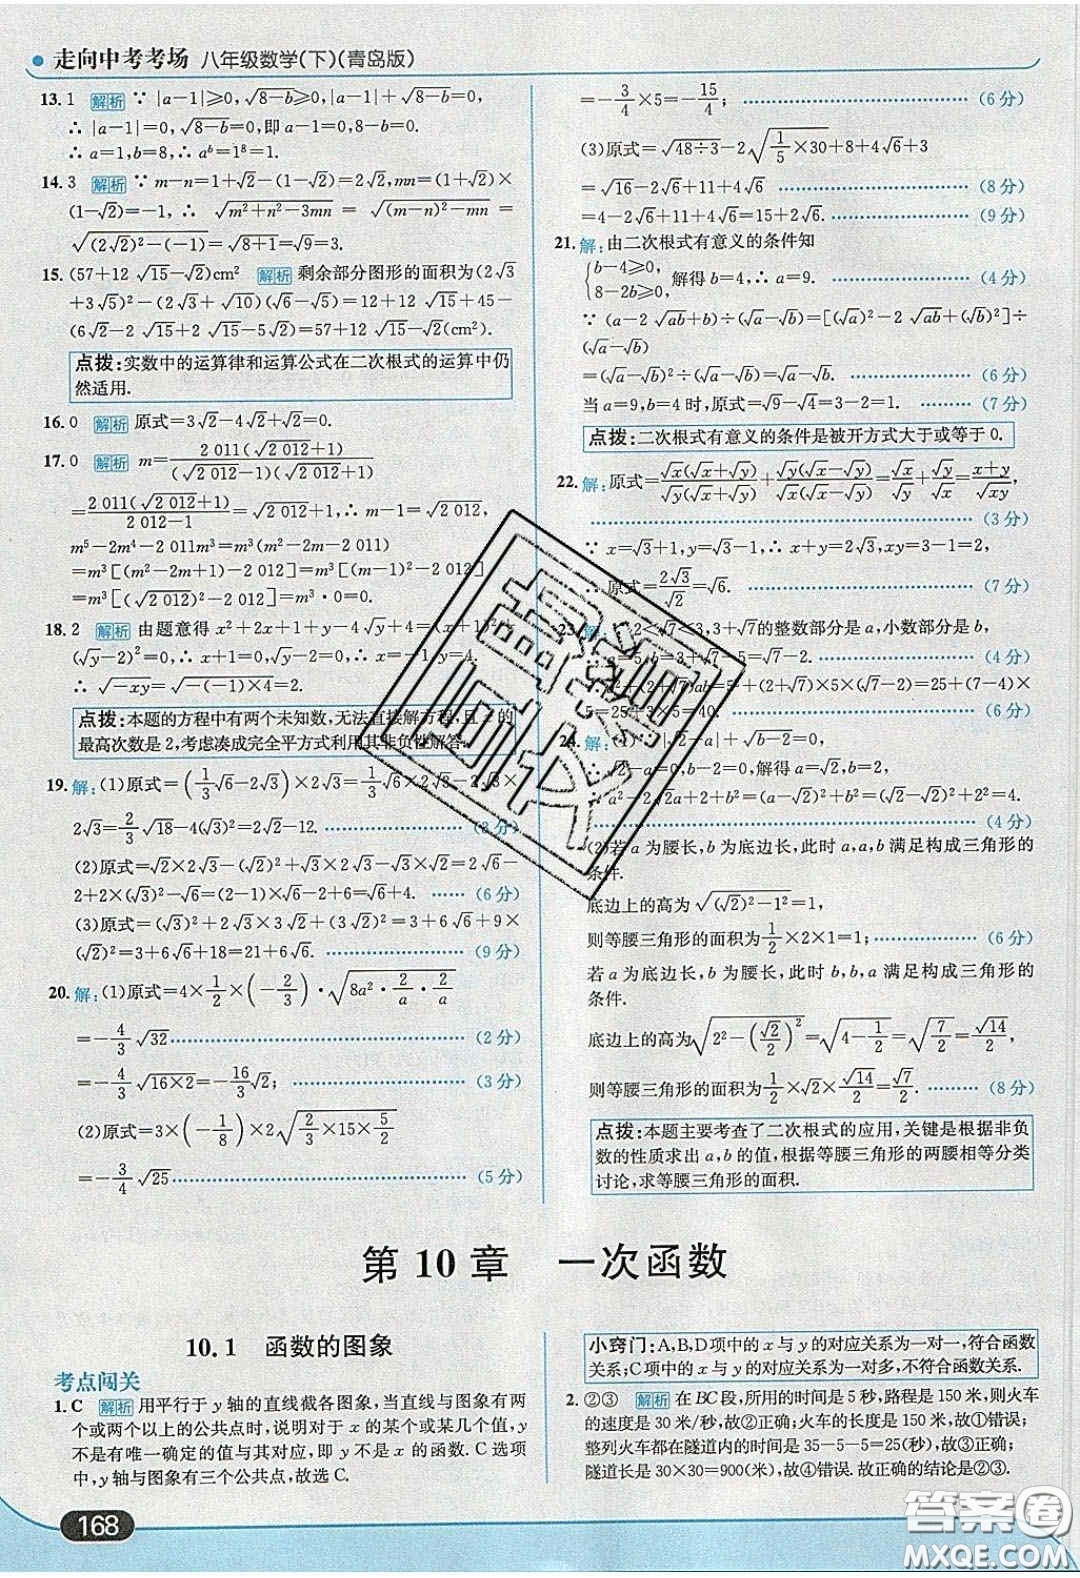 走向中考考场 八年级数学(下)(青岛版)
13.1 解析 ∵ |a−1|≥0,√(8−b)≥0,|a−1|+√(8−b)=0,
∴ |a−1|=0,√(8−b)=0,即a−1=0,8−b=0.
∴ a=1,b=8,∴ aᵇ=1⁸=1.
14.3 解析 ∵ m−n=1+√2−(1−√2)=2√2,mn=(1+√2)×
(1−√2)=−1, ∴ √(m²+n²−3mn) = √((m−n)²−mn) =
√((2√2)²−(−1))=√(8+1)=√9=3.
15.(57+12√15−√2)cm² 解析 剩余部分图形的面积为(2√3
+3√5)²−(2√3+√10)(√6−√5)=12+12√15+45−
(6√2−2√15+2√15−5√2)=57+12√15−√2(cm²).
点拨:实数中的运算律和运算公式在二次根式的运算中仍
然适用.
16.0 解析 原式=3√2−4√2+√2=0.
17.0 解析 m=2 011(√2 012+1)/((√2 012−1)(√2 012+1))
=2 011(√2 012+1)/(2 012−1)=√2 012+1,∴ m−1=√2 012,
m⁵−2m⁴−2 011m³=m³(m²−2m−2 011)
=m³[(m²−2m+1)−2 012]=m³[(m−1)²−2 012]
=m³[(√2 012)²−2 012]=m³·0=0.
18.2 解析 由题意得x²+2x+1+y−4√y+4=(x+1)²+
(√y−2)²=0,∴ x+1=0,√y−2=0,∴ x=−1,y=4.
∴ √(−xy)=√(−(−1)×4)=2.
点拨:本题的方程中有两个未知数,无法直接解方程,且x的
最高次数是2,考虑凑成完全平方式利用其非负性解答.
19.解:(1)原式=(1/3√6−2√3)×2√3=1/3√6×2√3−2√3×
2√3=2/3√18−4(√3)²=2√2−12. (3分)
(2)原式=√2×2√3−(√2)²+√3×2√3−√3×√2=2√6−
2+2×(√3)²−√6=(2−1)×√6−2+6=√6+4. (6分)
(3)原式=(√3)²+2√3×3√2+(3√2)²=3+6√6+9×
(√2)²=3+6√6+18=21+6√6. (9分)
20.解:(1)原式=4×1/2×(−2/3)·√(8a²·2/a·2/a)
=−4/3√32 (2分)
=−4/3√(16×2)=−16/3√2; (3分)
(2)原式=3×(−1/8)×2√(2/3×15×5/2)
=−3/4√25 (5分)
=−3/4×5=−15/4; (6分)
(3)原式=√(48÷3)−2√(1/5×30)+8+4√6+3
=√16−2√6+11+4√6 (8分)
=4−2√6+11+4√6=15+2√6. (9分)
21.解:由二次根式有意义的条件知
{b−4≥0, 8−2b≥0, 解得b=4,∴ a=9. (4分)
∵ (a−2√ab+b)÷(√a−√b)=[(√a)²−2√ab+(√b)²]÷
(√a−√b)
=(√a−√b)²÷(√a−√b)=√a−√b. (6分)
当a=9,b=4时,原式=√9−√4=3−2=1. (7分)
点拨:二次根式有意义的条件是被开方式大于或等于0.
22.解:原式=√x(√x+√y)/(√y(√x+√y))+√y(√x−√y)/(√x(√x−√y))=√x/√y+√y/√x=(x+y)/√xy,
(3分)
∵ x=√3+1,y=√3−1,∴ x+y=2√3,xy=3−1=2.
∴ 原式=2√3/√2=√6. (7分)
23.解:∵ 2<√7<3,3+√7的整数部分是a,小数部分是b,
∴ a=5,b=3+√7−5=√7−2. (4分)
∴ a²+(2+√7)ab=5²+(2+√7)×5×(√7−2)=25+(7−4)×
5=25+3×5=40. (6分)
24.解:(1)∵ |√2−a|+√(b−2)=0,
∴ √2−a=0,b−2=0,解得a=√2,b=2,
∴ a²−2√2a+2+b²=(a−√2)²+b²=(√2−√2)²+2²=4.
(4分)
(2)若a为腰长,b为底边长,此时a,a,b满足构成三角形的
条件.
底边上的高为√((√2)²−1²)=1,
则等腰三角形的面积为1/2×2×1=1; (6分)
若a为底边长,b为腰长,此时b,b,a满足构成三角形的
条件.
底边上的高为√(2²−(√2/2)²)=√(4−1/2)=√(7/2)=√14/2,
则等腰三角形的面积为1/2×√2×√14/2=√7/2. (8分)
点拨:本题主要考查了二次根式的应用,关键是根据非负
数的性质求出a,b的值,根据等腰三角形的两腰相等分类
讨论,求等腰三角形的面积.
第10章 一次函数
10.1 函数的图象
考点闯关
1.C 解析 用平行于y轴的直线截各图象,当直线与图象有两
个或两个以上的公共点时,说明对于x的某个或某几个值,y
不是有唯一确定的值与其对应,即y不是x的函数.C选项
中,y轴与图象有三个公共点,故选C.
小窍门:A,B,D项中的x与y的对应关系为一对一,符合函数
关系;C项中的x与y的对应关系为一对多,不符合函数关系.
2.②③ 解析 在BC段,所用的时间是5秒,路程是150米,则火车
的速度是30米/秒,故②正确;火车的长度是150米,故①错误;
整列火车都在隧道内的时间是35−5−5=25(秒),故③正确;
隧道长是30×30=900(米),故④错误.故正确的结论是②③.
168
答案圈
MXQE.COM